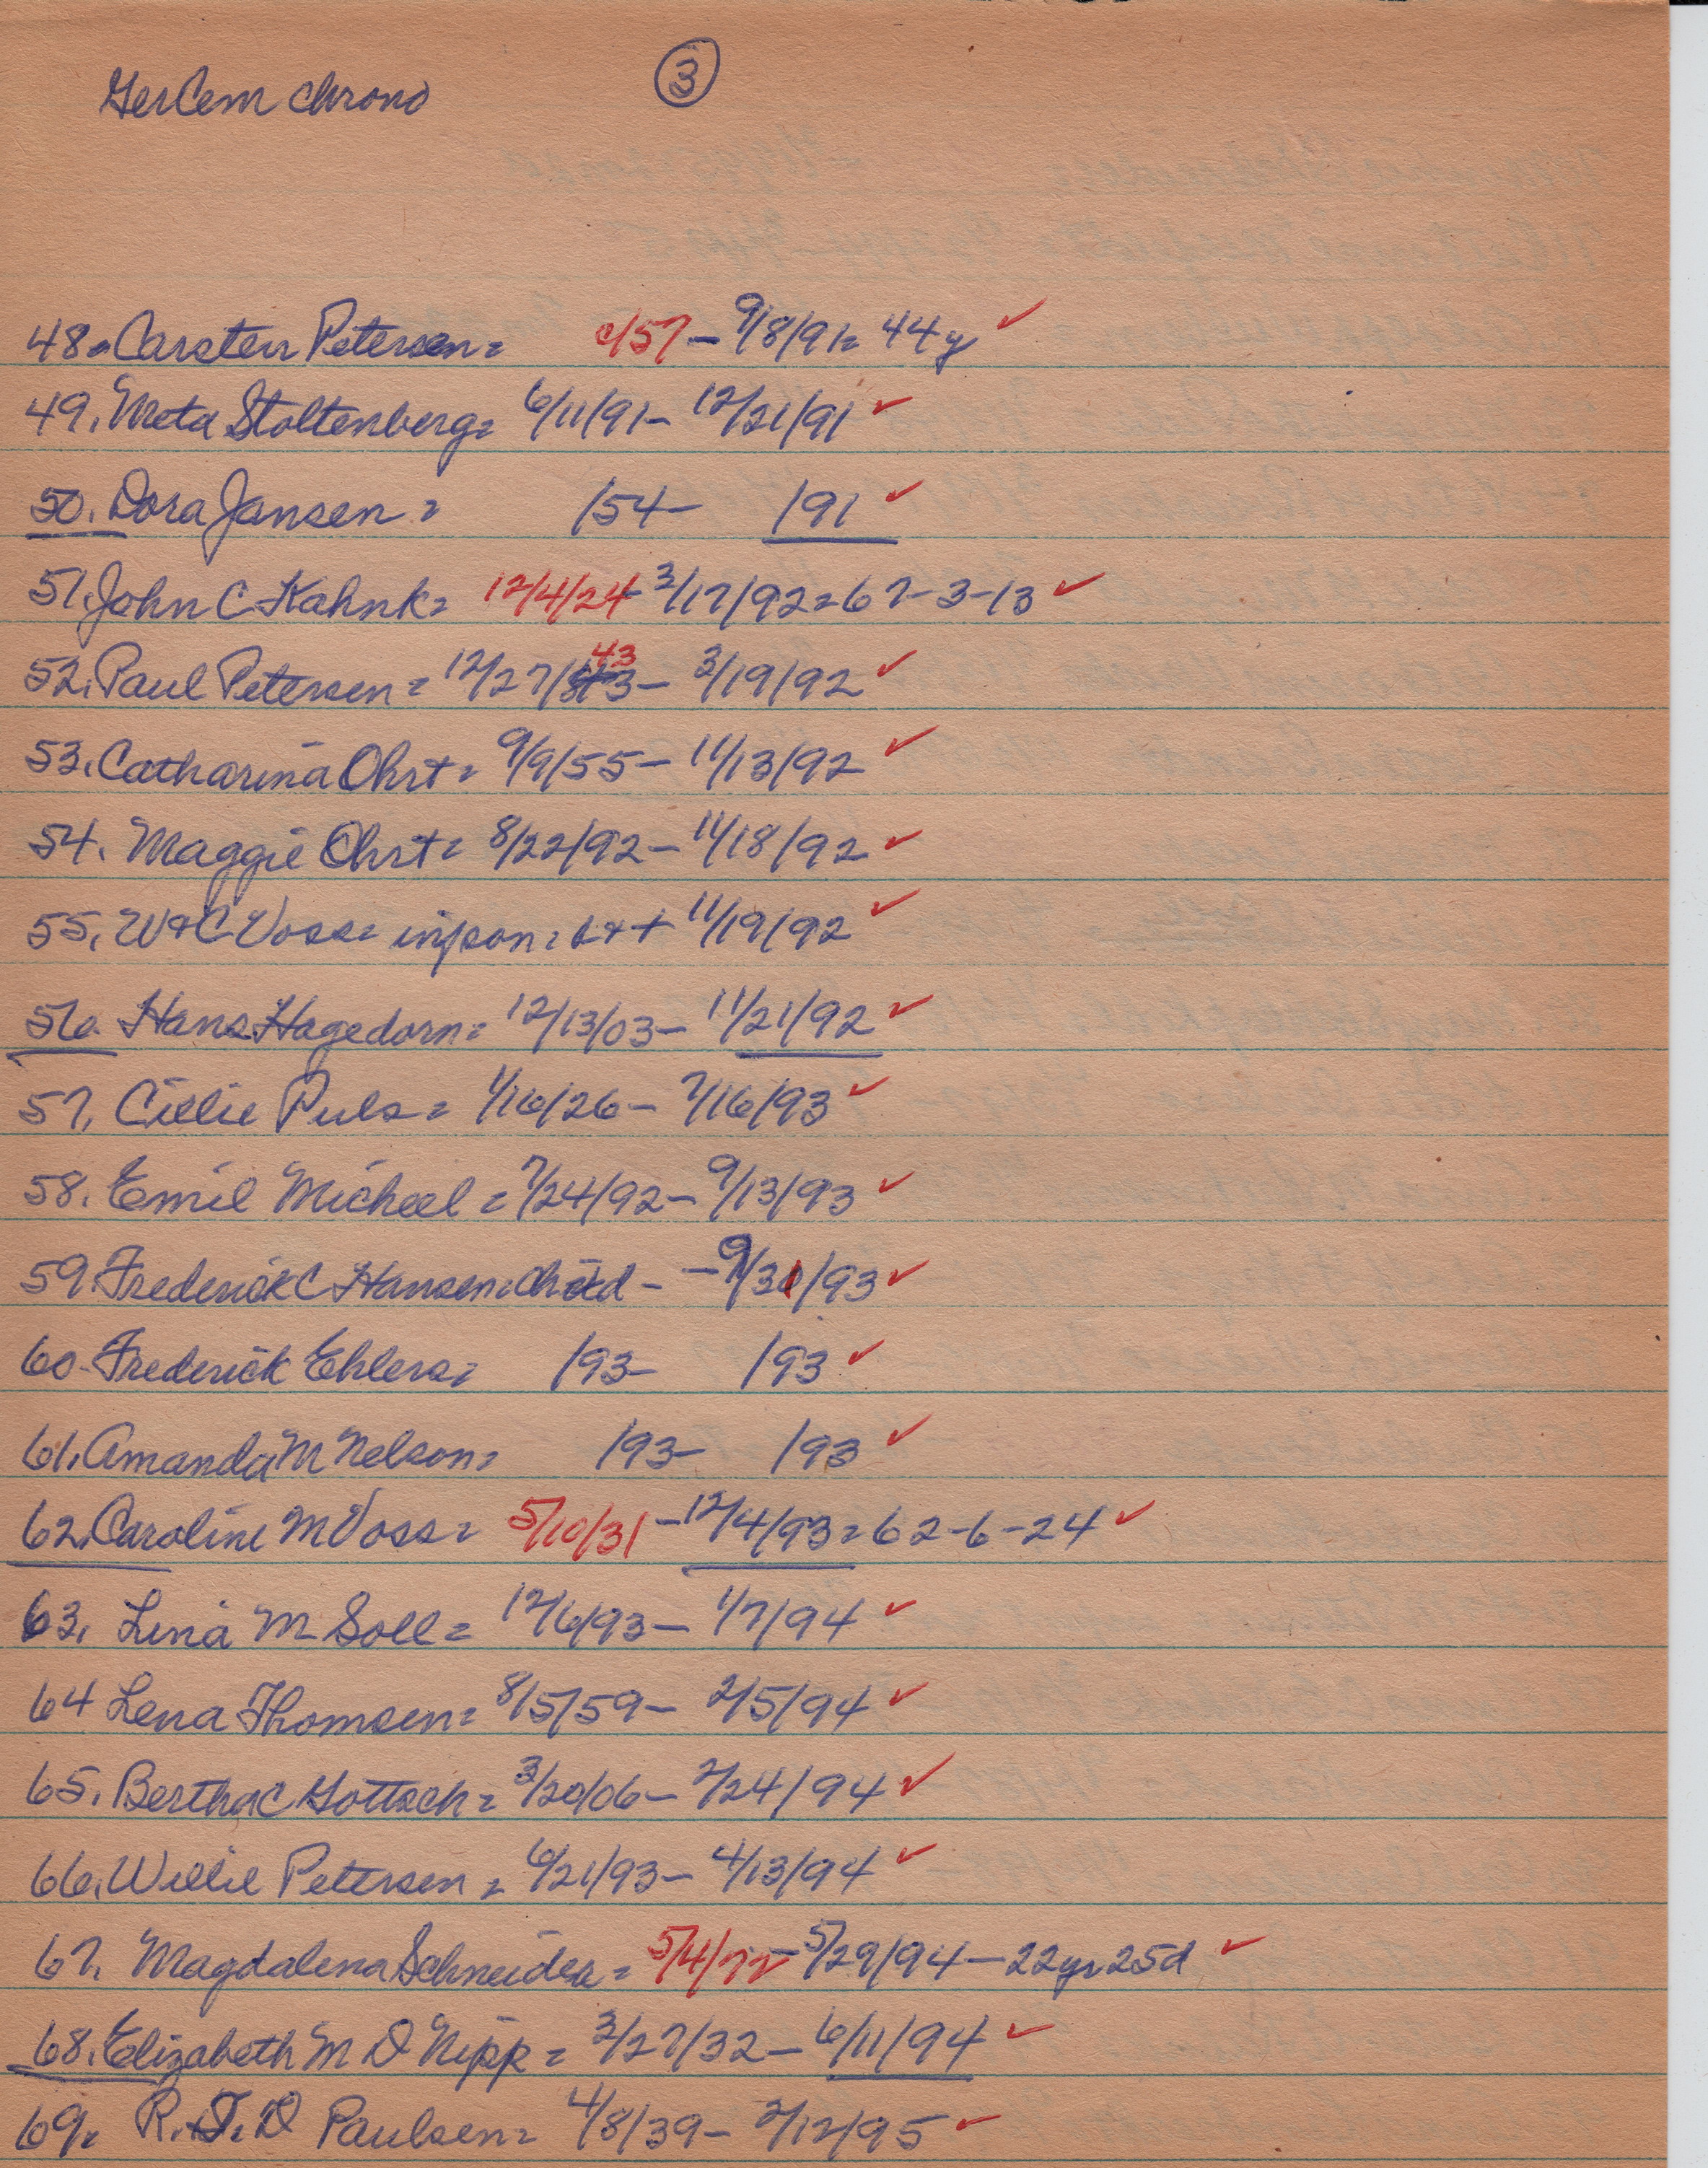 GerCem chrono ③
48. Carsten Petersen = c/57 - 9/8/91 = 44y ✓
49. Meta Stoltenberg = 6/11/91 - 12/21/91 ✓
50. Dora Jansen = /54 - /91 ✓
51. John C Kahnk = 12/4/24 - 3/17/92 = 67-3-13 ✓
52. Paul Petersen = 12/27/43 - 3/19/92 ✓
53. Catharina Ohrt = 9/9/55 - 11/13/92 ✓
54. Maggie Ohrt = 8/22/92 - 11/18/92 ✓
55. W+C Voss = inf son = b + + 11/19/92 ✓
56. Hans Hagedorn = 12/13/03 - 11/21/92 ✓
57. Cillie Puls = 1/16/26 - 7/16/93 ✓
58. Emil Micheel = 7/24/92 - 9/13/93 ✓
59. Frederick C Hansen = child - - 9/31/93 ✓
60. Frederick Ehlers = /93 - /93 ✓
61. Amanda M Nelson = /93 - /93 ✓
62. Caroline M Voss = 5/10/31 - 12/4/93 = 62-6-24 ✓
63. Lina M Soll = 12/6/93 - 1/7/94 ✓
64 Lena Thomsen = 8/5/59 - 2/5/94 ✓
65. Bertha C Gottsch = 3/20/06 - 2/24/94 ✓
66. Willie Petersen = 6/21/93 - 4/13/94 ✓
67. Magdalena Schneider = 5/4/72 - 5/29/94 - 22yr 25d ✓
68. Elizabeth M D Nipp = 3/27/32 - 6/11/94 ✓
69. R. F. D Paulsen = 4/8/39 - 2/12/95 ✓